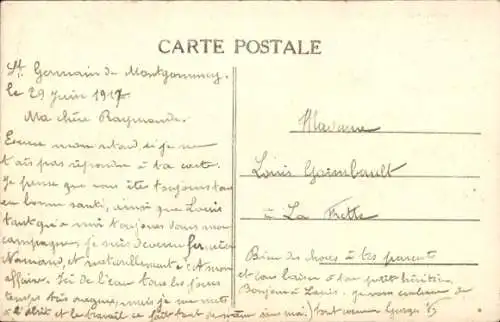 CARTE POSTALE
St Germain de Montgommery.
le 29 Juin 1917.
Ma chère Raymonde.
Excuse mon retard, si je ne
t'ais pas répondre à ta carte.
Je pense que vous êtes toujours tous
en bonne santé, ainsi que Louis
tant qu'à moi toujours dans mon
campagne, je suis devenu
Normand, et naturellement c'est mon
affaire. Ici de l'eau tous les jours
temps très mais je me mets
à l'abri et le travail ce fait tout de même sans moi.
Madame
Louis Goimbault
à La Frette
Bien des choses à tes parents
et bon baiser à ton petit héritier.
Bonjour à Louis. je vous embrasse de
tout coeur Georges